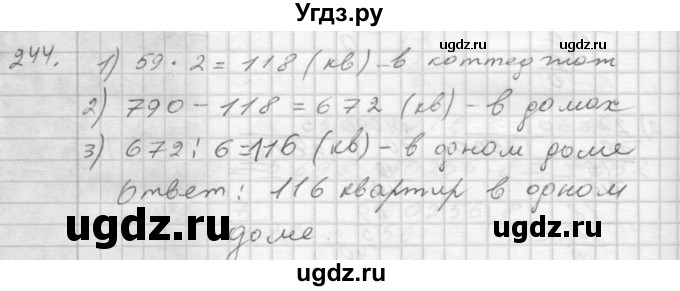 Угдз.ру
244. 1) 59 · 2 = 118 (кв) – в коттеджах
ugdz.ru
ugdz.ru
2) 790 – 118 = 672 (кв) – в домах
3) 672 : 6 = 116 (кв) – в одном доме
Ответ: 116 квартир в одном
ugdz.ru
ugdz.ru
доме.
ugdz.ru